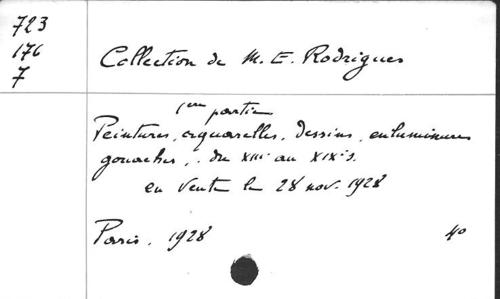 723
176
7
Collection de M. E. Rodrigues
1ère partie
Peintures, aquarelles, dessins, enluminures
gouaches, . du XIII au XIXe s.
en vente le 28 nov. 1928
Paris. 1928 4°